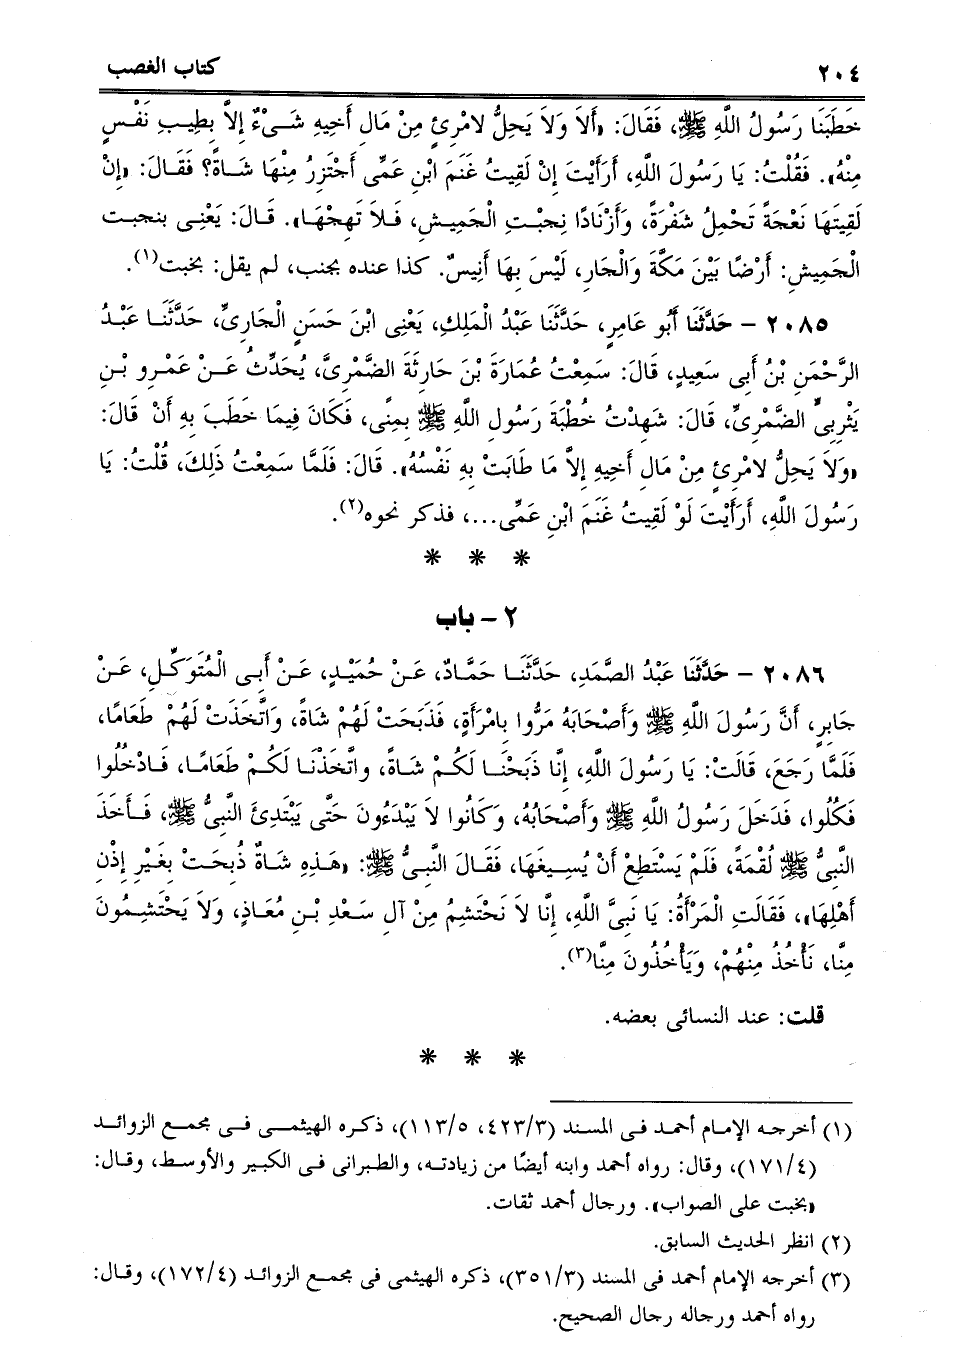 ٢٠٤ كتاب الغصب
خَطَبَنَا رَسُولُ اللَّهِ ﷺ، فَقَالَ: «أَلاَ وَلاَ يَحِلُّ لامْرِئٍ مِنْ مَالِ أَخِيهِ شَىْءٌ إِلاَّ بِطِيبِ نَفْسٍ
مِنْهُ». فَقُلْتُ: يَا رَسُولَ اللَّهِ، أَرَأَيْتَ إِنْ لَقِيتُ غَنَمَ ابْنِ عَمِّى أَجْتَزِرُ مِنْهَا شَاةً؟ فَقَالَ: «إِنْ
لَقِيتَهَا نَعْجَةً تَحْمِلُ شَفْرَةً، وَأَزْنَادًا بَجبْتِ الْجَمِيشِ، فَلاَ تَهِجْهَا». قَالَ: يَعْنِى بنجبت
الْجَمِيشِ: أَرْضًا بَيْنَ مَكَّةَ وَالْجَارِ، لَيْسَ بِهَا أَنِيسٌ. كذا عنده بجنب، لم يقل: بخبت(١).
٢٠٨٥ – حَدَّثَنَا أَبُو عَامِرٍ، حَدَّثَنَا عَبْدُ الْمَلِكِ، يَعْنِى ابْنَ حَسَنٍ الْجَارِىَّ، حَدَّثَنَا عَبْدُ
الرَّحْمَنِ بْنُ أَبِى سَعِيدٍ، قَالَ: سَمِعْتُ عُمَارَةَ بْنَ حَارِثَةَ الضَّمْرِىَّ، يُحَدِّثُ عَنْ عَمْرِو بْنِ
يَثْرِبِىٍّ الضَّمْرِىِّ، قَالَ: شَهِدْتُ خُطْبَةَ رَسُولِ اللَّهِ ﷺ بِمِنًى، فَكَانَ فِيمَا خَطَبَ بِهِ أَنْ قَالَ:
«وَلاَ يَحِلُّ لامْرِئٍ مِنْ مَالِ أَخِيهِ إِلاَّ مَا طَابَتْ بِهِ نَفْسُهُ». قَالَ: فَلَمَّا سَمِعْتُ ذَلِكَ، قُلْتُ: يَا
رَسُولَ اللَّهِ، أَرَأَيْتَ لَوْ لَقِيتُ غَنَمَ ابْنِ عَمِّى...، فذكر نحوه(٢).
* * *
٢ – باب
٢٠٨٦ – حَدَّثَنَا عَبْدُ الصَّمَدِ، حَدَّثَنَا حَمَّادٌ، عَنْ حُمَيْدٍ، عَنْ أَبِى الْمُتَوَكِّلِ، عَنْ
جَابِرٍ، أَنَّ رَسُولَ اللَّهِ ﷺ وَأَصْحَابَهُ مَرُّوا بِامْرَأَةٍ، فَذَبَحَتْ لَهُمْ شَاةً، وَاتَّخَذَتْ لَهُمْ طَعَامًا،
فَلَمَّا رَجَعَ، قَالَتْ: يَا رَسُولَ اللَّهِ، إِنَّا ذَبَحْنَا لَكُمْ شَاةً، واتَّخَذْنَا لَكُمْ طَعَامًا، فَادْخُلُوا
فَكُلُوا، فَدَخَلَ رَسُولُ اللَّهِ ﷺ وَأَصْحَابُهُ، وَكَانُوا لاَ يَبْدَءُونَ حَتَّى يَبْتَدِئَ النَّبِىُّ ﷺ، فَأَخَذَ
النَّبِىُّ ﷺ لُقْمَةً، فَلَمْ يَسْتَطِعْ أَنْ يُسِيغَهَا، فَقَالَ النَّبِىُّ ﷺ: «هَذِهِ شَاةٌ ذُبِحَتْ بِغَيْرِ إِذْنِ
أَهْلِهَا»، فَقَالَتِ الْمَرْأَةُ: يَا نَبِىَّ اللَّهِ، إِنَّا لاَ نَحْتَشِمُ مِنْ آلِ سَعْدِ بْنِ مُعَاذٍ، وَلاَ يَحْتَشِمُونَ
مِنَّا، نَأْخُذُ مِنْهُمْ، وَيَأْخُذُونَ مِنَّا(٣).
قلت: عند النسائى بعضه.
* * *
(١) أخرجه الإمام أحمد فى المسند (٤٢٣/٣، ١١٣/٥)، ذكره الهيثمى فى مجمع الزوائد
(١٧١/٤)، وقال: رواه أحمد وابنه أيضًا من زيادته، والطبرانى فى الكبير والأوسط، وقال:
«بخبت على الصواب». ورجال أحمد ثقات.
(٢) انظر الحديث السابق.
(٣) أخرجه الإمام أحمد فى المسند (٣٥١/٣)، ذكره الهيثمى فى مجمع الزوائد (١٧٢/٤)، وقال:
رواه أحمد ورجاله رجال الصحيح.